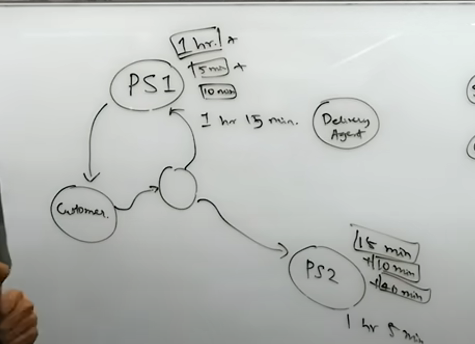 1 hr. +
15 min +
10 min
PS1
1 hr 15 min.
Delivery
Agent
Customer.
PS2
15 min
+10 min
+40 min
1 hr 5 min